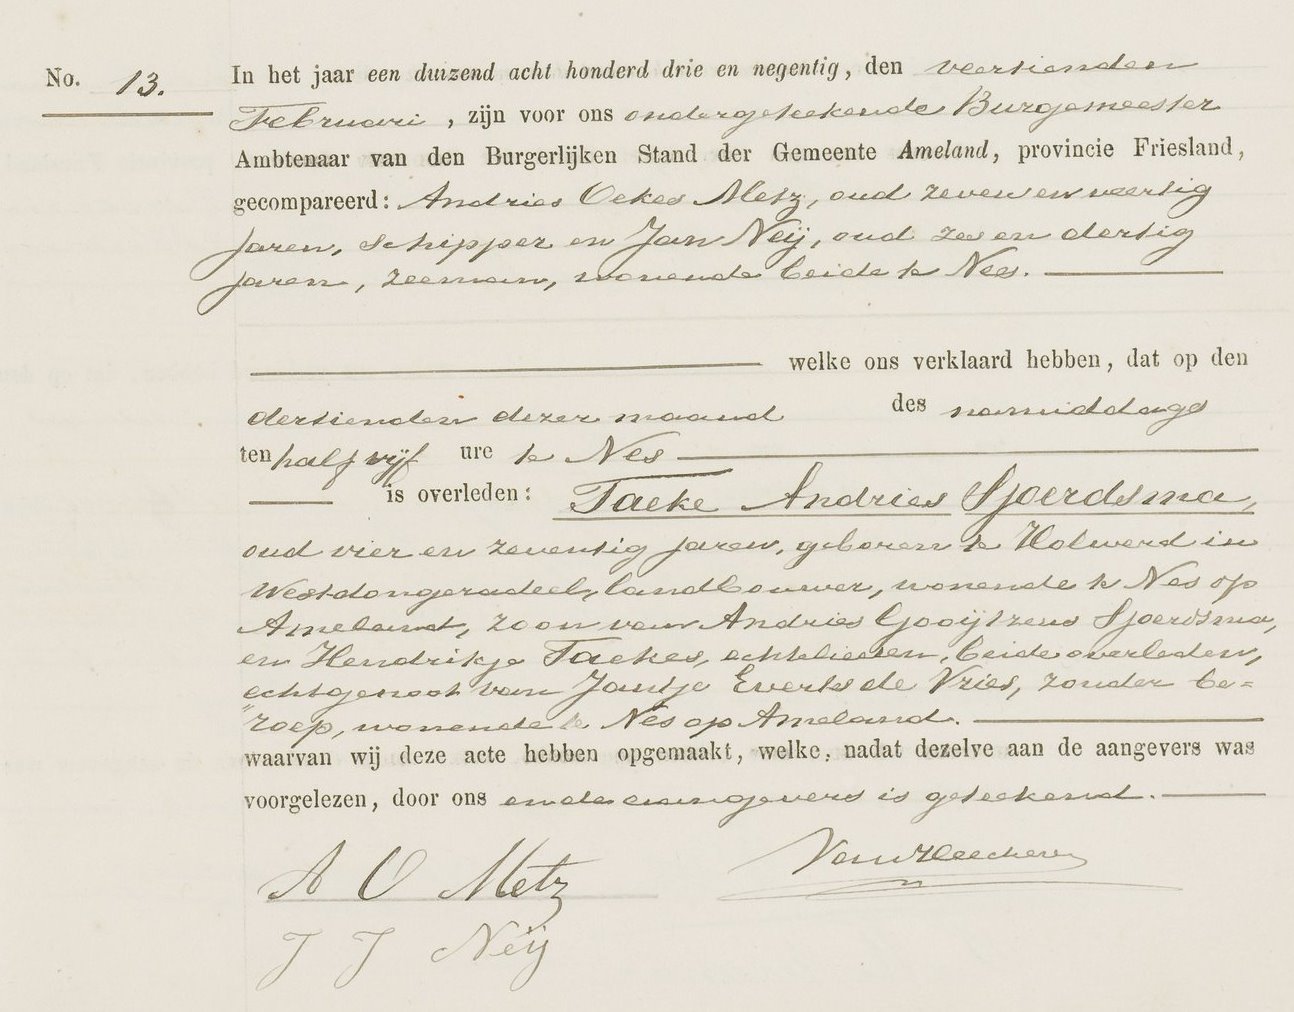 No. 13.
In het jaar een duizend acht honderd drie en negentig, den veertienden
Februari, zijn voor ons ondergeteekende Burgemeester
Ambtenaar van den Burgerlijken Stand der Gemeente Ameland, provincie Friesland,
gecompareerd: Andries Oekes Metz, oud zeven en veertig
jaren, schipper en Jan Neij, oud zes en dertig
jaren, zeeman, wonende beide te Nes.
welke ons verklaard hebben, dat op den
dertienden dezer maand des namiddags
ten half vijf ure te Nes
is overleden: Taeke Andries Sjoerdsma,
oud vier en zeventig jaren, geboren te Holwerd in
Westdongeradeel, landbouwer, wonende te Nes op
Ameland, zoon van Andries Gooijtzens Sjoerdsma,
en Hendrikje Taekes, echtelieden, beide overleden,
echtgenoot van Jantje Everts de Vries, zonder be=
"roep, wonende te Nes op Ameland.
waarvan wij deze acte hebben opgemaakt, welke, nadat dezelve aan de aangevers was
voorgelezen, door ons en de aangevers is geteekend.
A O Metz
J J Neij